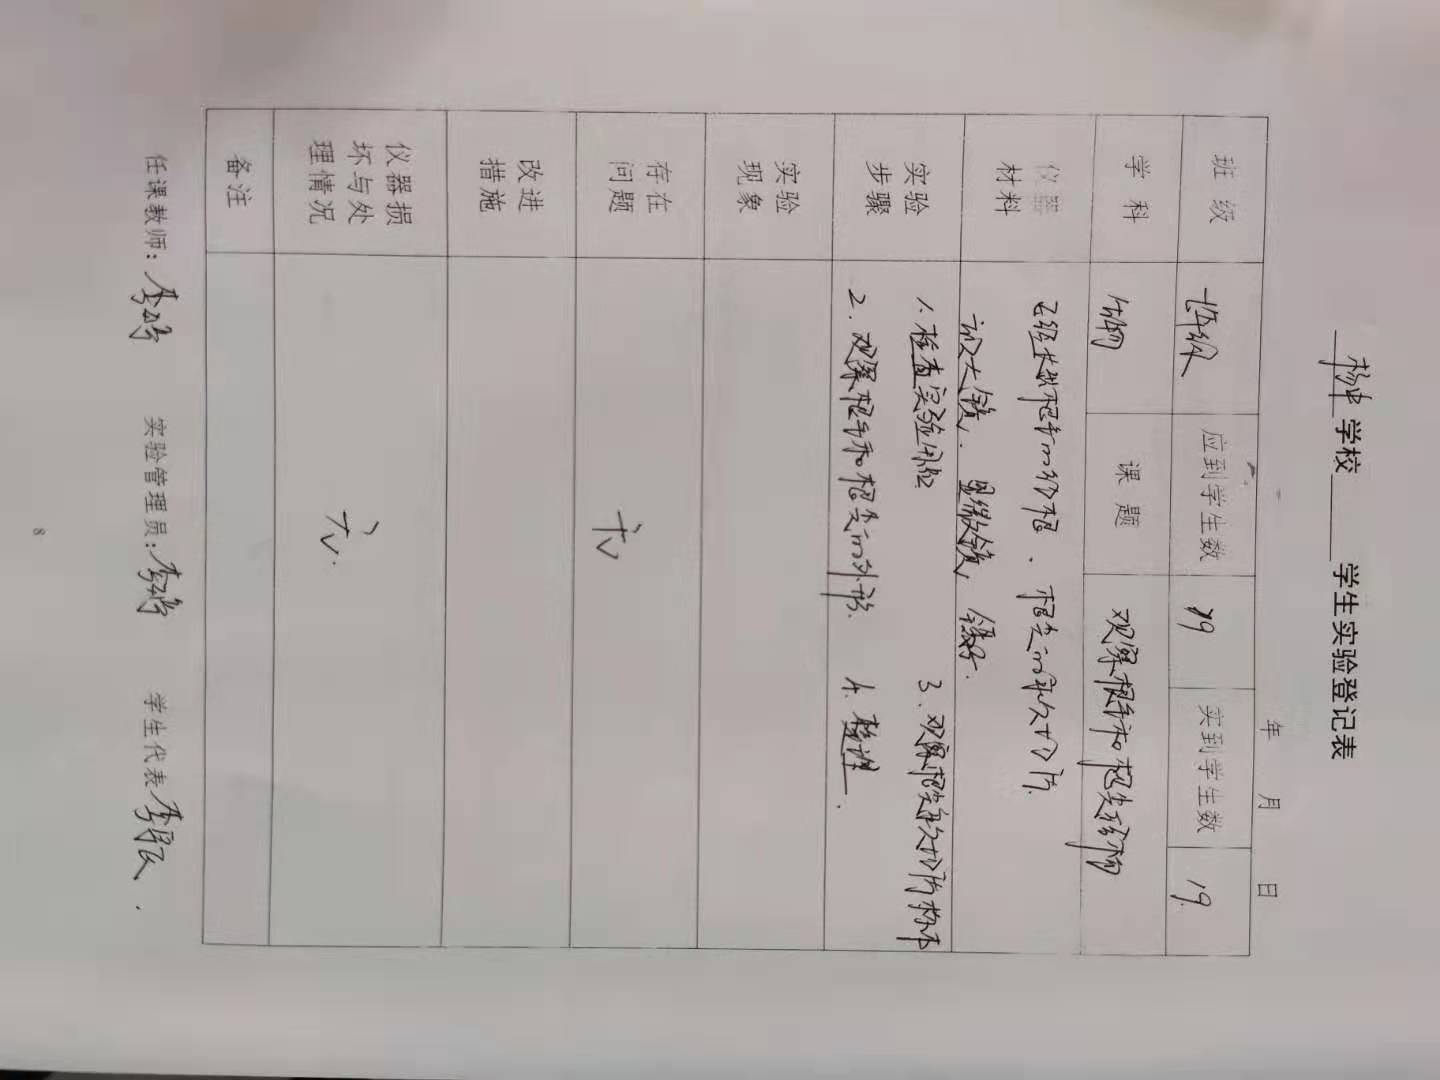 杨中学校 学生实验登记表
年 月 日
班级 七年级 应到学生数 19 实到学生数 19.
学科 生物 课题 观察根毛和根尖结构
仪器材料 已经长出根毛的幼根、根尖的永久切片.
放大镜、显微镜, 镊子.
实验步骤 1. 检查实验用品 3、观察根尖永久切片标本
2. 观察根毛和根尖的外形. 4. 整理.
实验现象
存在问题 无
改进措施
仪器损坏与处理情况 无.
备注
任课教师: 实验管理员: 学生代表
8